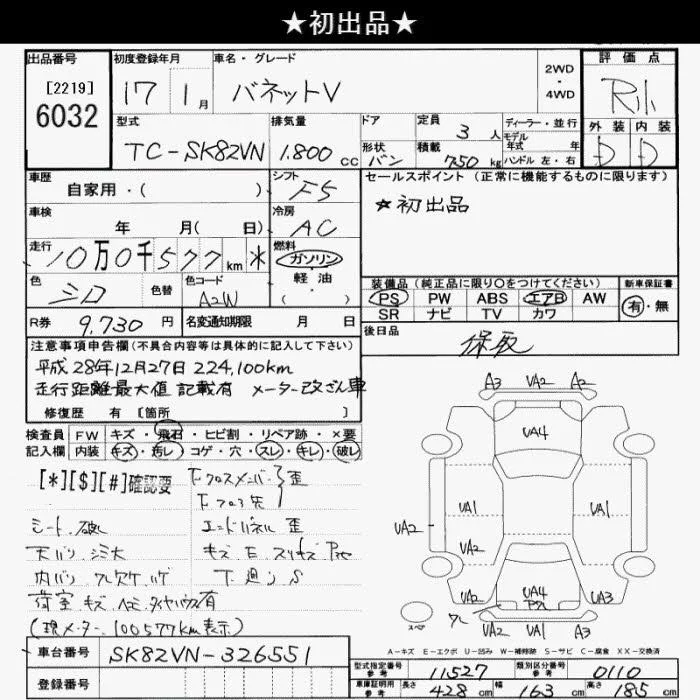 ★初出品★
出品番号
[2219]
6032
初度登録年月
17 1月
車名・グレード
バネットV
2WD
・
4WD
評価点
R小
型式
TC-SK82VN
排気量
1.800 cc
ドア
形状
バン
定員
3人
積載
750kg
ディーラー・並行
モデル
年式 年
ハンドル 左・右
外装 内装
D D
車歴
自家用・( )
シフト
F5
セールスポイント (正常に機能するものに限ります)
☆初出品
車検
年 月( 日)
冷房
AC
走行
10万0千577km *
燃料
ガソリン
・
軽油
( )
色
シロ
色替
色コード
A2W
装備品 (純正品に限り○をつけてください)
PS PW ABS エアB AW
SR ナビ TV カワ
新車保証書
有・無
R券
9,730円
名変通知期限 月 日
後日品
保取
注意事項申告欄(不具合内容等は具体的に記入して下さい)
平成28年12月27日 224,100km
走行距離最大値 記載有 メーター改ざん車
修復歴 有 [箇所 ]
検査員
記入欄
FW キズ・飛石・ヒビ割・リペア跡・×要
内装 キズ・汚レ・コゲ・穴・スレ・キレ・破レ
[*][$][#]確認要
F クロスメンバー 歪
F フロア先
シート 破レ
エンドパネル 歪
天バリ シミ大
内バリ ワレ欠ケ ハゲ
下廻り S
荷室 キズ ヘコミ タイヤハウス有
(現メーター 100577km表示)
A3 VA2 A2
UA4
UA1 UA1
UA2
UA2
UA2 UA4 UA3
ワレ
UA2 UA1 A3
スペア
A-キズ E-エクボ U-凹み W-補修跡 S-サビ C-腐食 XX-交換済
車台番号
SK82VN-326551
登録番号
型式指定番号
参考
11527
類別区分番号
参考
0110
車庫証明用
参考
長さ 428cm 幅 163cm 高さ 185cm